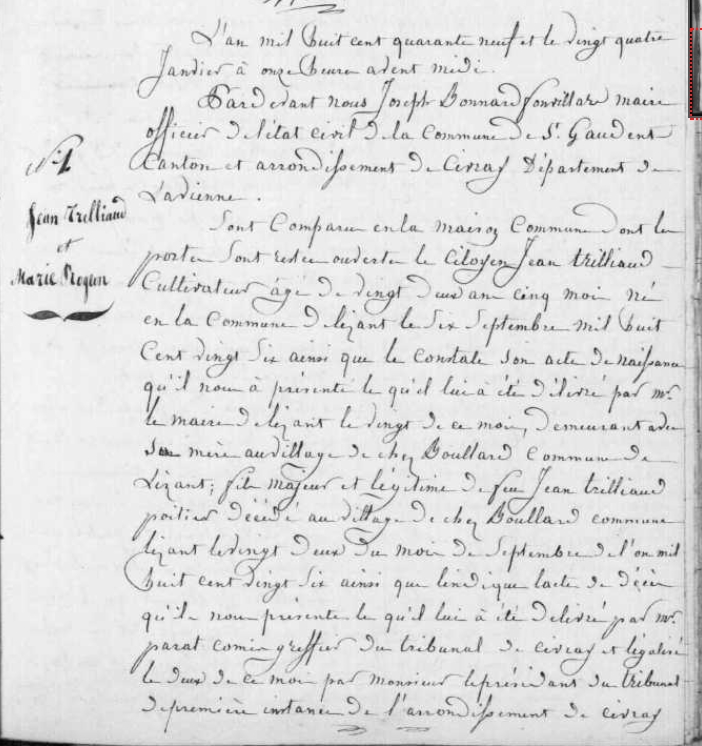 L'an mil huit cent quarante neuf et le vingt quatre
Janvier à onze heure avent midi.
Pardevant nous Joseph Bonnard fonvillard maire
officier de létat civil de la Commune de St Gaudent
Canton et arrondissement de Civray Département de
Lavienne.
N° 1
Jean Trilliaud
et
Marie Roqun
Sont Comparu en la maison Commune dont les
portes Sont restée ouverte le Citoyen Jean trilliaud
Cultivateur âgé de vingt deux ans cinq mois né
en la Commune de lizant le Six Septembre mil huit
Cent vingt Six ainsi que le Constate Son acte de naissance
qu'il nous à présenté le qu'il lui à été délivré par mr
le maire de lizant le vingt de ce mois, demeurant avec
Sa mère au village de chez Boullard Commune de
Lizant; fils majeur et légitime de feu Jean trilliaud
poitier décédé au village de chez Boullard commune
lizant le vingt deux du mois de Septembre de l'an mil
huit cent vingt Six ainsi que lindique lacte de décès
qu'il nous présente le qu'il lui à été délivré par mr
parat comis greffier du tribunal de civray et légalisé
le deux de ce mois par monsieur le présidant du tribunal
de première instance de l'arrondissement de civray